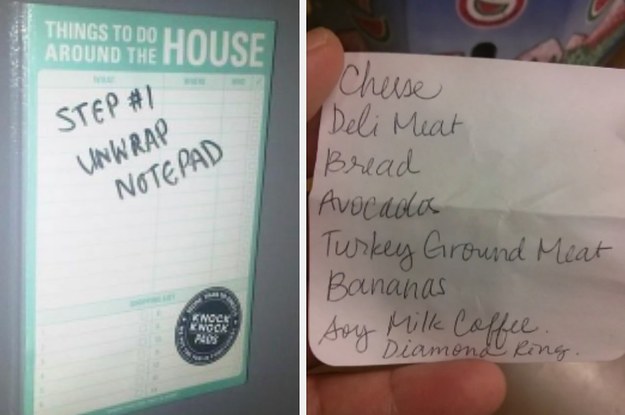 THINGS TO DO
AROUND THE HOUSE
STEP #1
UNWRAP
NOTEPAD
SHOPPING LIST
KNOCK
KNOCK
PADS
Cheese
Deli Meat
Bread
Avocados
Turkey Ground Meat
Bananas
Soy Milk Coffee.
Diamond Ring.